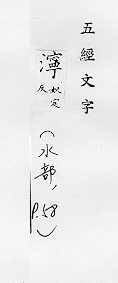 五經文字
濘奴定反
(水部,
P.58)